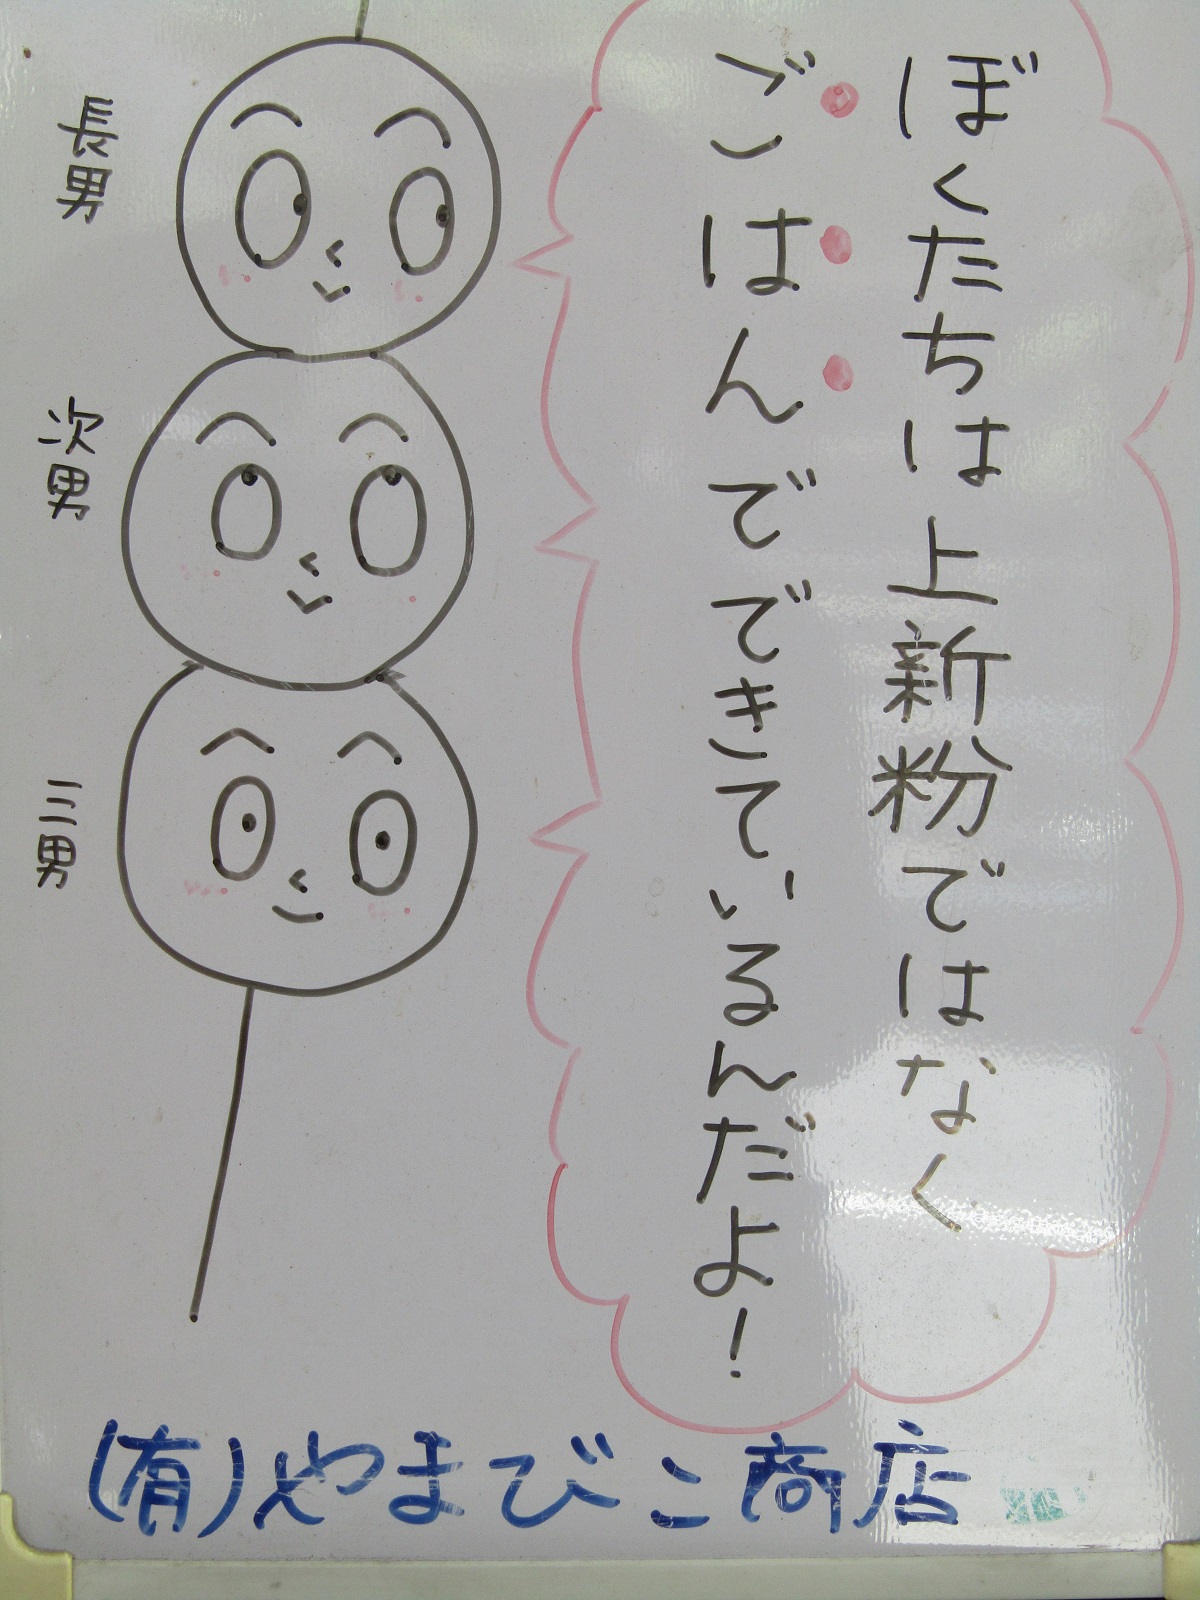 ぼくたちは上新粉ではなく
ごはんでできているんだよ!
長男
次男
三男
(有)やまびこ商店